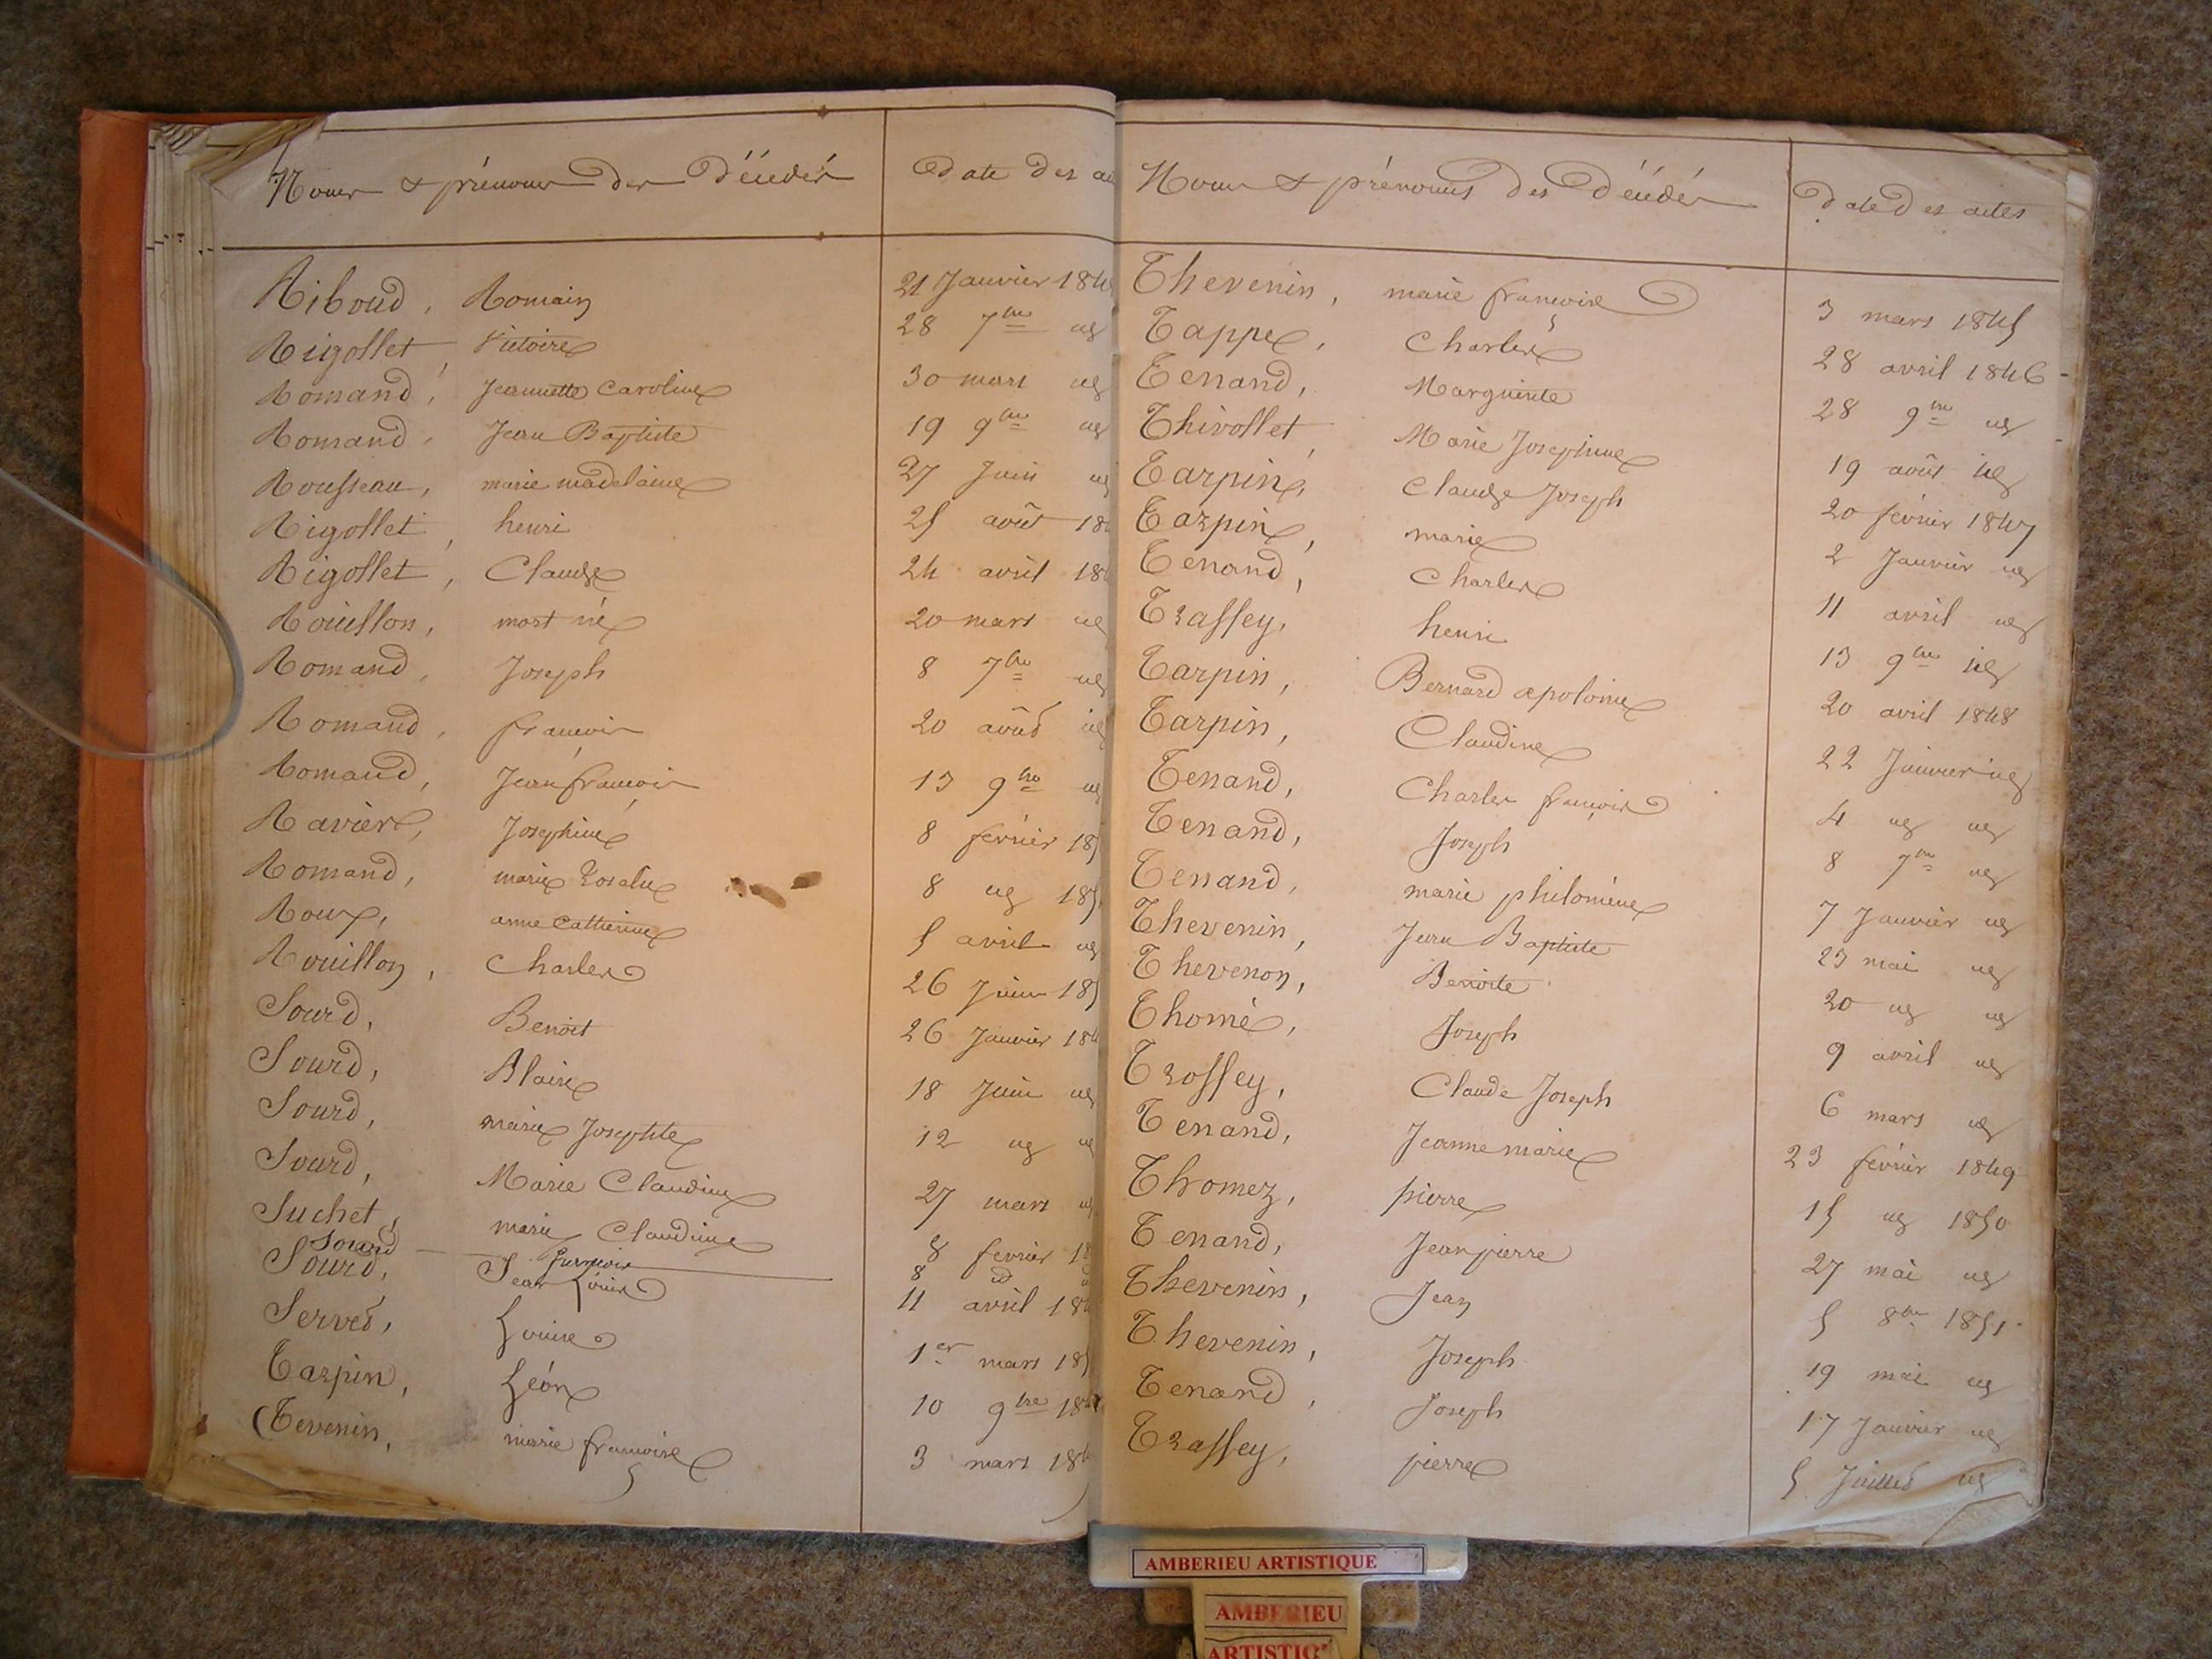 Noms & prénoms des Décédés
Date des
Riboud, Romain 21 Janvier 184
Rigollet, Victoire 28 7bre id
Romand, Jeannette Caroline 30 mars id
Romand, Jean Baptiste 19 9bre id
Rousseau, marie madelaine 27 Juin id
Rigollet, henri 25 août 18
Rigollet, Claude 24 avril 18
Rouillon, mort né 20 mars id
Romand, Joseph 8 7bre id
Romand, françois 20 août id
Romand, Jean françois 13 9bre id
Ravière, Josephine 8 février 18
Romand, marie Rosalie 8 id 185
Roux, anne Catherine 5 avril id
Rouillon, Charles 26 Juin 185
Sourd, Benoit 26 Janvier 184
Sourd, Blaise 18 Juin id
Sourd, marie Josephte 12 id id
Sourd, Marie Claudine 27 mars id
Suchet, marie Claudine 8 fevrier 18
Sourd françois 8 id
Sourd, Jean Louis 11 avril 18
Servet, Louise 1er mars 18
Tarpin, Léon 10 9bre 18
(Tevenin, marie françoise 3 mars 184
Noms & prénoms des Décédés
Date des actes
Thevenin, marie françoise 3 mars 1845
Tappe, Charles 28 avril 1846
Tenand, Marguerite 28 9bre id
Thivollet, Marie Josephine 19 août id
Tarpin, Claude Joseph 20 février 1847
Tarpin, marie 2 Janvier id
Tenand, Charles 11 avril id
Traffey, henri 13 9bre id
Tarpin, Bernard apolonie 20 avril 1848
Tarpin, Claudine 22 Janvier id
Tenand, Charles françois 4 id id
Tenand, Joseph 8 7bre id
Tenand, marie philomène 7 Janvier id
Thevenin, Jean Baptiste 23 mai id
Thevenon, Benoite 20 id id
Thomé, Joseph 9 avril id
Troffey, Claude Joseph 6 mars id
Tenand, Jeanne marie 23 février 1849
Thomez, pierre 15 id 1850
Tenand, Jean pierre 27 mai id
Thevenin, Jean 5 8bre 1851
Thevenin, Joseph 19 mai id
Tenand, Joseph 17 Janvier id
Traffey, pierre 5 Juillet id
AMBERIEU ARTISTIQUE
AMBERIEU